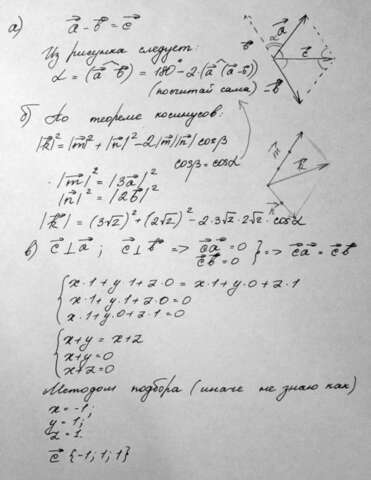 а) a⃗ - b⃗ = c⃗
Из рисунка следует:
α = (a⃗ ^ b⃗) = 180° - 2·(a⃗ ^ (a⃗-b⃗))
(посчитай сама)
b⃗ α a⃗ c⃗ -b⃗
б) По теореме косинусов:
|k⃗|² = |m⃗|² + |n⃗|² - 2|m⃗||n⃗| cosβ
cosβ = cosα
|m⃗|² = |3a⃗|²
|n⃗|² = |2b⃗|²
m⃗ k⃗ n⃗
|k⃗|² = (3√2)² + (2√2)² - 2·3√2·2√2·cosα
в) c⃗ ⊥ a⃗; c⃗ ⊥ b⃗ => c⃗a⃗ = 0
c⃗b⃗ = 0 } => c⃗a⃗ = c⃗b⃗
{ x·1 + y·1 + z·0 = x·1 + y·0 + z·1
x·1 + y·1 + z·0 = 0
x·1 + y·0 + z·1 = 0
{ x+y = x+z
x+y = 0
x+z = 0
Методом подбора (иначе не знаю как)
x = -1;
y = 1;
z = 1.
c⃗ {-1; 1; 1}